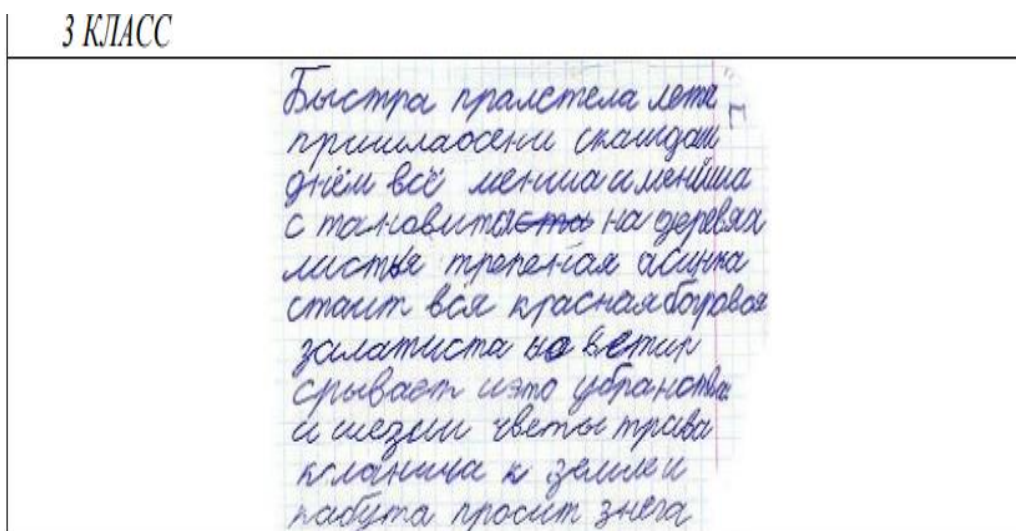 3 КЛАСС
Быстра пралетела лета
пришлаосени скаждам
днём всё менша и менйша
с тановится ста на деревях
листья трепеная асинка
стаит вся красная богровоя
залатиста но ветир
срывает иэто убранства
и шезли чветы трава
кланица к земле и
пабута просит знега